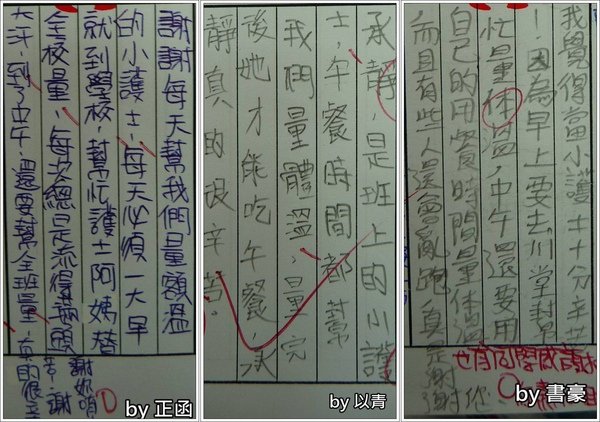 謝謝每天幫我們量額溫
的小護士,每天必須一大早
就到學校,幫忙護士阿姨替
全校量,每次總是流得滿頭
大汗,到了中午,還要幫全班量,真的很辛
苦!謝
謝妳唷!
by 正函
承靜,是班上的小護
士,午餐時間都幫
我們量體溫,量完
後她才能吃午餐,承
靜真的很辛苦。
by 以青
我覺得當小護士十分辛苦
!因為早上要去川堂
忙量体溫,中午還要用
自己的用餐時間量体溫
,而且有些人還會亂跑,真是謝謝你
也有同學感謝
by 書豪